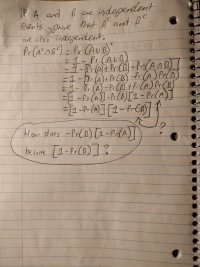 If A and B are independent
events, prove that A^c and B^c
are also independent.
Pr(A^c∩B^c) = Pr(A∪B)^c
= 1 - Pr(A∪B)
= 1 - [Pr(A) + Pr(B) - Pr(A∩B)]
= 1 - [Pr(A) + Pr(B) - Pr(A)Pr(B)]
= 1 - Pr(A) - Pr(B) + Pr(A)Pr(B)
= [1 - Pr(A)] - Pr(B)[1 - Pr(A)]
= [1 - Pr(A)][1 - Pr(B)]
?
How does - Pr(B)[1 - Pr(A)]
become [1 - Pr(B)]?